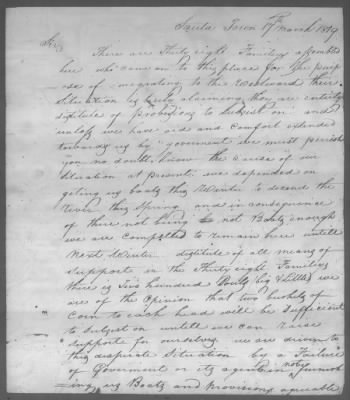 Town 17th March 1829
Sir
There are Thirty eight Families assembled
here who came on to this place for the purp
ose of emigrating to the Westward their
Situation is truly alarming they are entirely
distitute of to Subsist on and
unless we have aid and comfort extended
towards us by goverment we must perish
you no doubt know the cause of our
Situation at present we depended on
geting up Boats this Winter to decend the
River this Spring and in consequence
of there not being Boats enough
we are compelled to remain here untill
Next Winter distitute of all means of
supporte in the Thirty eight Families
there is Two hundred Souls big & Little we
are of the opinion that two bushels of
Corn to each head will be Sufficient
to Subsist on untill we can raise
supporte for ourselves we are driven to
this disperate Situation by a Failure
of Goverment or its agents in not furnish
=ing us Boats and provisions agreable